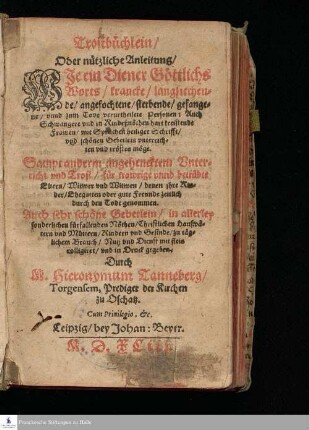 Trostbüchlein/
Oder nützliche Anleitung/
WJe ein Diener Göttlichs
Worts/ krancke/ langsiechen-
de/ angefochtene/ sterbende/ gefange-
ne/ vnnd zum Tode verurtheilete Personen: Auch
Schwangere vnd in Kindesnöthen hart
Frawen/ mit Sprüchen heiliger Schrifft/
vnd schönen Gebetlein vnterrich-
ten vnd trösten möge.
Sampt anderm angehencktem Vnter-
richt vnd Trost/ für trawrige vnnd betrübte
Eltern/ Witwer vnd Witwen/ denen jhre Kin-
der/ Ehegatten oder gute Freunde zeitlich
durch den Todt genommen.
Auch sehr schöne Gebetlein/ in allerley
sonderlichen fürfallenden Nöthen/ Christlichen Hausvä-
tern vnd Müttern/ Kindern vnd Gesinde/ zu täg-
lichem Brauch/ Nutz vnd Dienst mit fleis
colligiret/ vnd in Druck gegeben.
Durch
M. Hieronymum Tanneberg/
Torgensem, Prediger der Kirchen
zu Oschatz.
Cum Privilegio, &c.
Leipzig/ bey Johan: Beyer.
Franckesche Stiftungen zu Halle